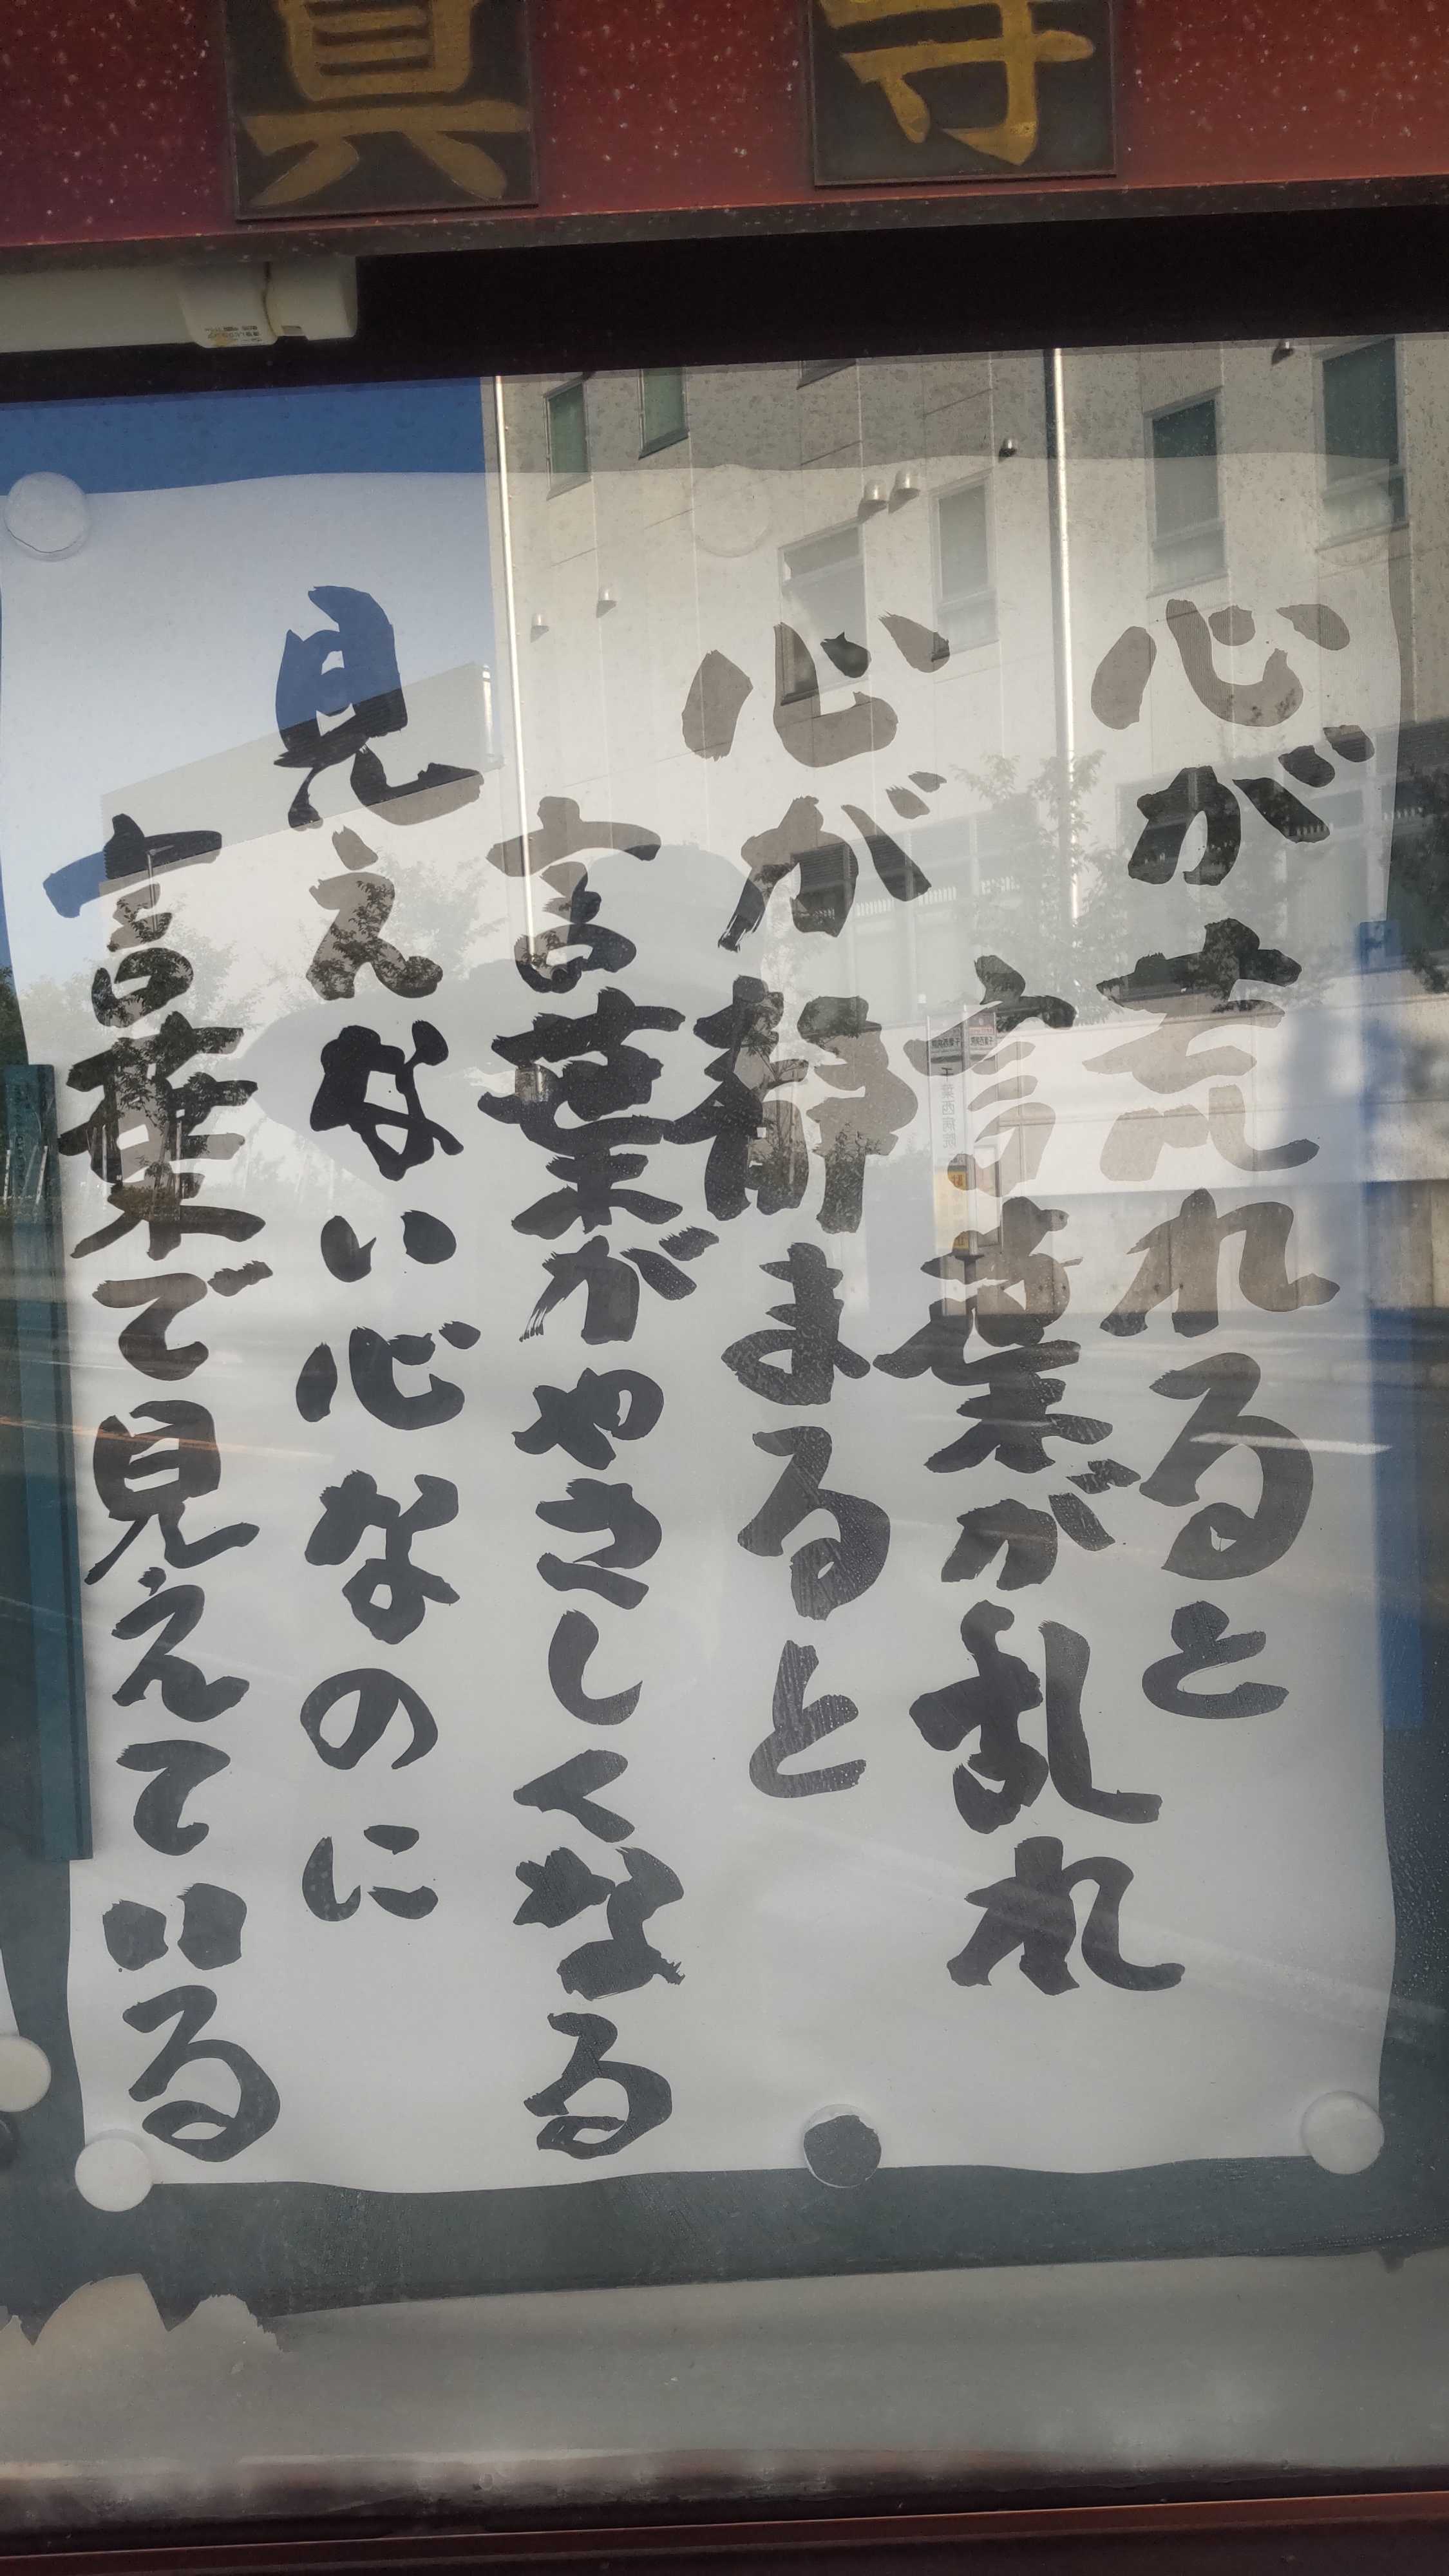 寺 真
心が荒れると
言葉が乱れ
心が静まると
言葉がやさしくなる
見えない心なのに
言葉で見えている
千葉西病院